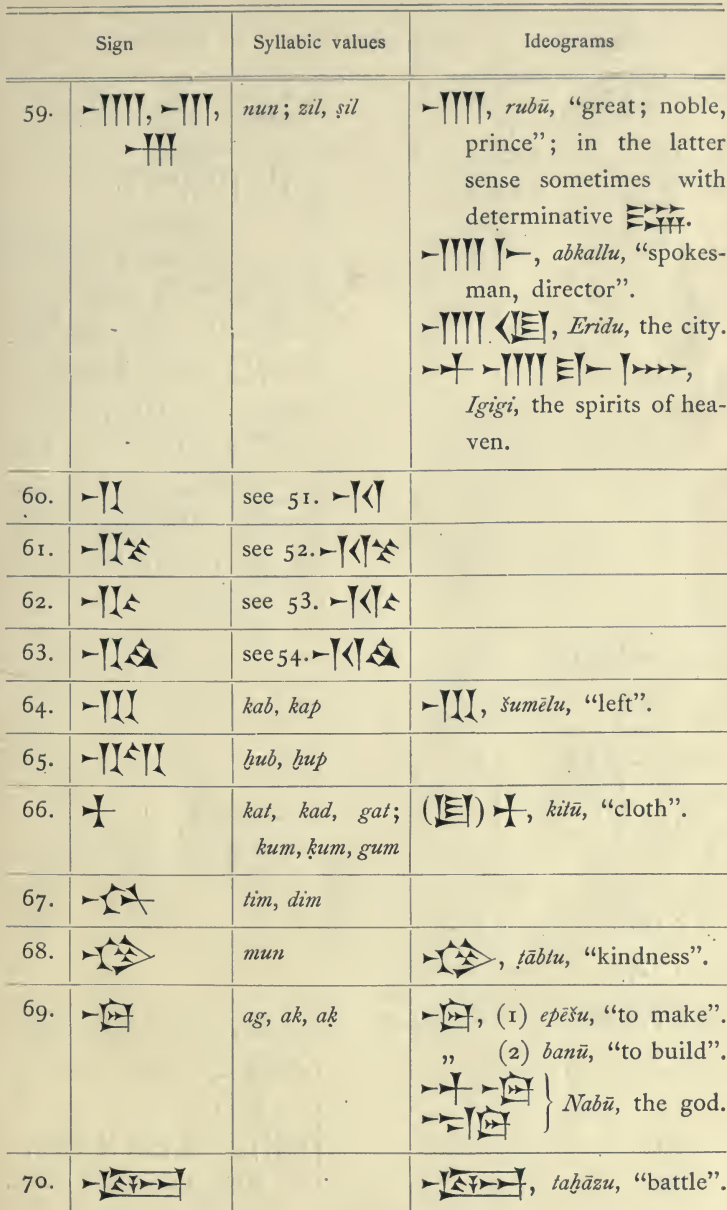 Sign Syllabic values Ideograms
59. 𒉣, nun; zil, ṣil 𒉣, rubū, “great; noble,
prince”; in the latter
sense sometimes with
determinative
𒉣𒈨, abkallu, “spokes-
man, director”.
𒉣𒆠, Eridu, the city.
𒀭𒉣𒃲𒈨𒌍,
Igigi, the spirits of hea-
ven.
60. see 51.
61. see 52.
62. see 53.
63. see 54.
64. 𒆏 kab, kap 𒆏, šumēlu, “left”.
65. ḫub, ḫup
66. 𒃰 kat, kad, gat; 𒃰, kitū, “cloth”.
kum, ḳum, gum
67. 𒁴 tim, dim
68. 𒁵 mun 𒁵, ṭābtu, “kindness”.
69. 𒀝 ag, ak, aḳ 𒀝, (1) epēšu, “to make”.
„ (2) banū, “to build”.
𒀭𒀝 } Nabū, the god.
70. taḫāzu, “battle”.